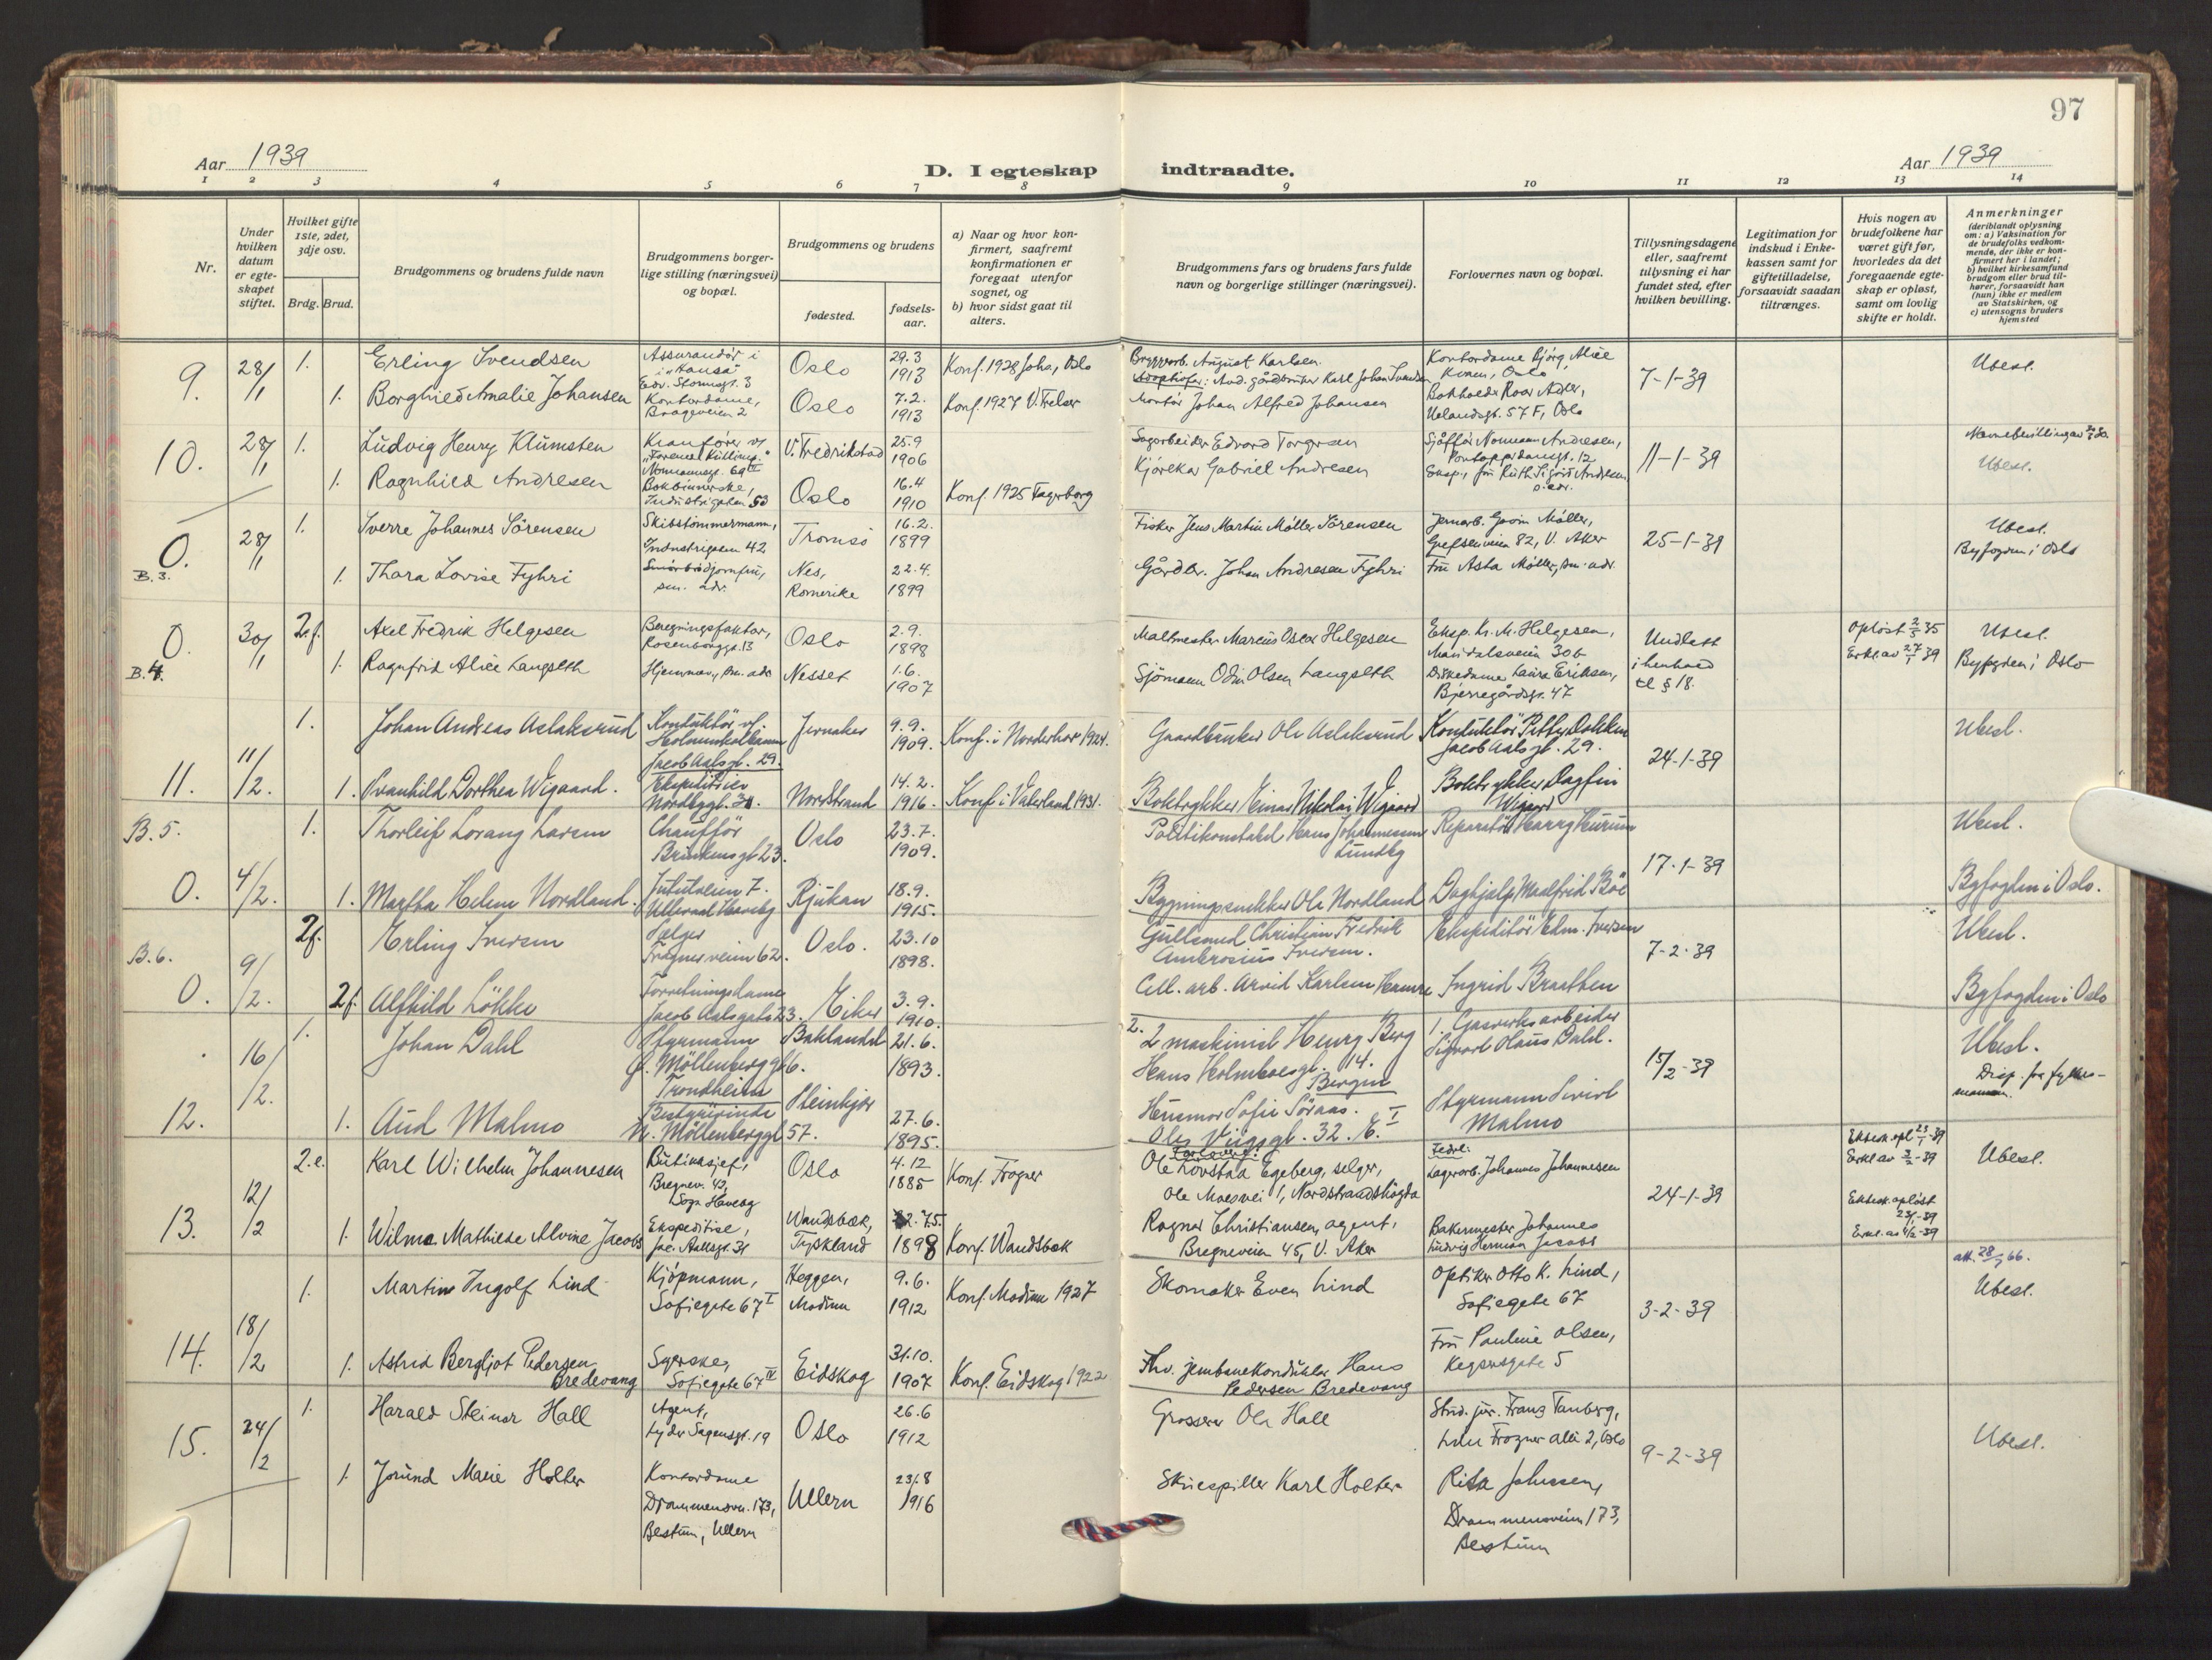 97
Aar 1939
D. I egteskap indtraadte.
Aar 1939
1 2 3 4 5 6 7 8 9 10 11 12 13 14
Nr.
Under hvilken datum er egteskapet stiftet.
Hvilket gifte 1ste, 2det, 3dje osv.
Brdg. Brud.
Brudgommens og brudens fulde navn
Brudgommens borgerlige stilling (næringsvei) og bopæl.
Brudgommens og brudens
fødested.
fødselsaar.
a) Naar og hvor konfirmert, saafremt konfirmationen er foregaat utenfor sognet, og
b) hvor sidst gaat til alters.
Brudgommens fars og brudens fars fulde navn og borgerlige stillinger (næringsvei).
Forlovernes navn og bopæl.
Tillysningsdagene eller, saafremt tillysning ei har fundet sted, efter hvilken bevilling.
Legitimation for indskud i Enkekassen samt for giftetilladelse, forsaavidt saadan tiltrænges.
Hvis nogen av brudefolkene har været gift før, hvorledes da det foregaaende egteskap er opløst, samt om lovlig skifte er holdt.
Anmerkninger
(deriblandt oplysning om: a) Vaksination for de brudefolks vedkommende, der ikke er konfirmert her i landet; b) hvilket kirkesamfund brudgom eller brud tilhører, forsaavidt han (hun) ikke er medlem av Statskirken, og c) utensogns bruders hjemsted
9. 28/1 1. Erling Svendsen
Assurandør i "Hansa" Edv. Stormsgt. 3
Oslo 29.3 1913 Konf. 1928 Johs, Oslo
August Karlsen.
Adoptivfar: Avd. gårdbruker Karl Johan Svendsen
Kontordame Bjørg Alice Kvam, Oslo
7-1-39
Ubesl.
1. Borghild Amalie Johansen
Kontordame, Brageveien 2
Oslo 7.2. 1913 Konf. 1927 V. Frelser
Montør Johan Alfred Johansen
Bokholder Roar Adler, Uelandsgt. 57 F, Oslo
10. 28/1 1. Ludvig Henry Klumsten
Kranfører v/
Normannsgt. 69 III
V. Fredrikstad 25.9 1906
Sagarbeider Edvard Torgersen
Sjåfør Normann Andresen, Pontoppidansgt. 12
11-1-39
Navnebevilling av
Ubesl.
1. Ragnhild Andresen
Bokbinnerske, Industrigaten 53
Oslo 16.4 1910 Konf. 1925 Fagerborg
Kjørekar Gabriel Andresen
Eksp., fru Ruth Sigrid Andresen s. adr.
0. B. 3. 28/1 1. Sverre Johannes Sørensen
Skibstømmermann, Industrigaten 42
Tromsø 16.2. 1899
Fisker Jens Martin Møller Sørensen
Jernarb. Møller, Grefsenveien 82, V. Aker
25-1-39
Ubesl.
Byfogden i Oslo
1. Thora Lovise Fyhri
Smørbrødjomfru, sm. adr.
Nes, Romerike 22.4. 1899
Gårdbr. Johan Andresen Fyhri
Fru Asta Møller, sm. adr.
0. B. 4. 30/1 2.f. Axel Fredrik Helgesen
Beregningsfaktor, Rosenborggt. 13
Oslo 2.9. 1898
Maltmester Marcus Oscar Helgesen
Eksp. Kr. M. Helgesen, Maridalsveien 30b
Undlatt i henhold til § 18.
Opløst 2/5 35
Erkl. av 27/1 39
Ubesl.
Byfogden i Oslo
1. Ragnfrid Alice Langseth
Hjemmev., sm. adr.
Nesset 1.6. 1907
Sjømann Odin Olsen Langseth
Diskedame Laura Eriksen, Bjerregårdsgt. 47
11. 11/2. 1. Johan Andreas Aslaksrud
Konduktør v/ Holmenkolbanen Jacob Aalsgt. 29.
Jevnaker 9.9. 1909. Konf. i Norderhov 1924.
Gaardbruker Ole Aslaksrud
Konduktør Petter Dokken Jacob Aalsgt. 29.
24-1-39
Ubesl.
1. Svanhild Dorthea Wigaard.
Ekspeditrice Nordbyggt. 31.
Nordstrand 14.2. 1916. Konf. i Vaterland 1931.
Boktrykker Einar Nikolai Wigaard
Boktrykker Dagfin Wigaard
B. 5. 0. 4/2. 1. Thorleif Lorang Larsen
Chauffør Brinkensgt. 23.
Oslo 23.7. 1909.
Politikonstabel Hans Johannessen Lundby
Reparatør Harry Hurum
17-1-39
Ubesl.
Byfogden i Oslo.
1. Martha Helene Nordland.
Jutulveien 7. Ullevaal Haveby
Rjukan 18.9. 1915.
Bygningssnekker Ole Nordland
Daghjelp Maalfrid Bøe
B. 6. 0. 9/2. 2f. Erling Iversen
Selger Frognerveien 62.
Oslo. 23.10 1898.
Gullsmed Christian Fredrik Ambrosius Iversen.
Ekspeditør Edm. Iversen
7-2-39
Ubesl.
Byfogden i Oslo
2f. Alfhild Løkke
Forretningsdame Jacob Aalsgate 23.
Eiker 3.9. 1910.
Cell. arb. Arvid Karlsen Hamre
Ingrid Braathen
12. 16/2. 1. Johan Dahl
Styrmann Ø. Möllenberggt 6. Trondheim
Baklandet 21.6. 1893.
2. 2 maskinist Henry Berg Hans Holmboesgt. 14. Bergen
1. Gasverksarbeider Sigvart Olaus Dahl.
15/2-39
Ubesl.
Disp. fra fylkesmannen.
1. Aud Malmo
Bestyrerinde N. Möllenberggt 57.
Steinkjer 27.6. 1895.
Husmor Sofie Söraas. Oles Vigsgt. 32. E. I
Styrmann Sivert Malmo
13. 12/2 2.e. Karl Wilhelm Johannesen
Butiksjef, Bregnev. 43, Sogn Haveby
Oslo 4.12 1885 Konf. Frogner
Forlovere: Ole Lovstad Egeberg, selger, Ole Moesvei 1, Nordstrandshøgda
Fedre: Lagerarb. Johannes Johannesen
24-1-39
Ektesk. opl 23/1-39
Erkl av 3/2-39
Ubesl.
1. Wilma Mathilde Alvine Jacobs
Ekspeditrise, Jac. Aallsgt. 31
Wandsbæk, Tyskland 1898 Konf. Wandsbæk
Ragnar Christiansen, agent, Bregneveien 45, V. Aker
Bakermester Johannes Ludvig Herman Jacobs
Ektesk. opløst 23/1-39
Erkl. av 4/2-39
14. 18/2 1. Martin Ingolf Lind
Kjøpmann, Sofiegate 67 I
Heggen, Modum 9.6. 1912 Konf. Modum 1927
Skomaker Even Lind
Optiker Otto K. Lind, Sofiegate 67
3-2-39
att. 28/5 66.
Ubesl.
1. Astrid Bergljot Pedersen Bredevang
Syerske, Sofiegate 67 IV
Eidskog 31.10. 1907 Konf. Eidskog 1922
Fhv. jernbanekonduktør Hans Pedersen Bredevang
Fru Pauline Olsen, Keysersgate 5
15. 24/2 1. Harald Steinar Hall
Agent, Lyder Sagensgt. 19
Oslo 26.6 1912
Grosserer Ole Hall
Stud. jur. Franz Tanberg, Frogner allé 2, Oslo
9-2-39
Ubesl.
1. Jorund Marie Holter
Kontordame Drammensvn. 173, Bestum, Ullern
Ullern 23.8 1916
Skuespiller Karl Holter
Rita Johnsen, Drammensveien 173, Bestum